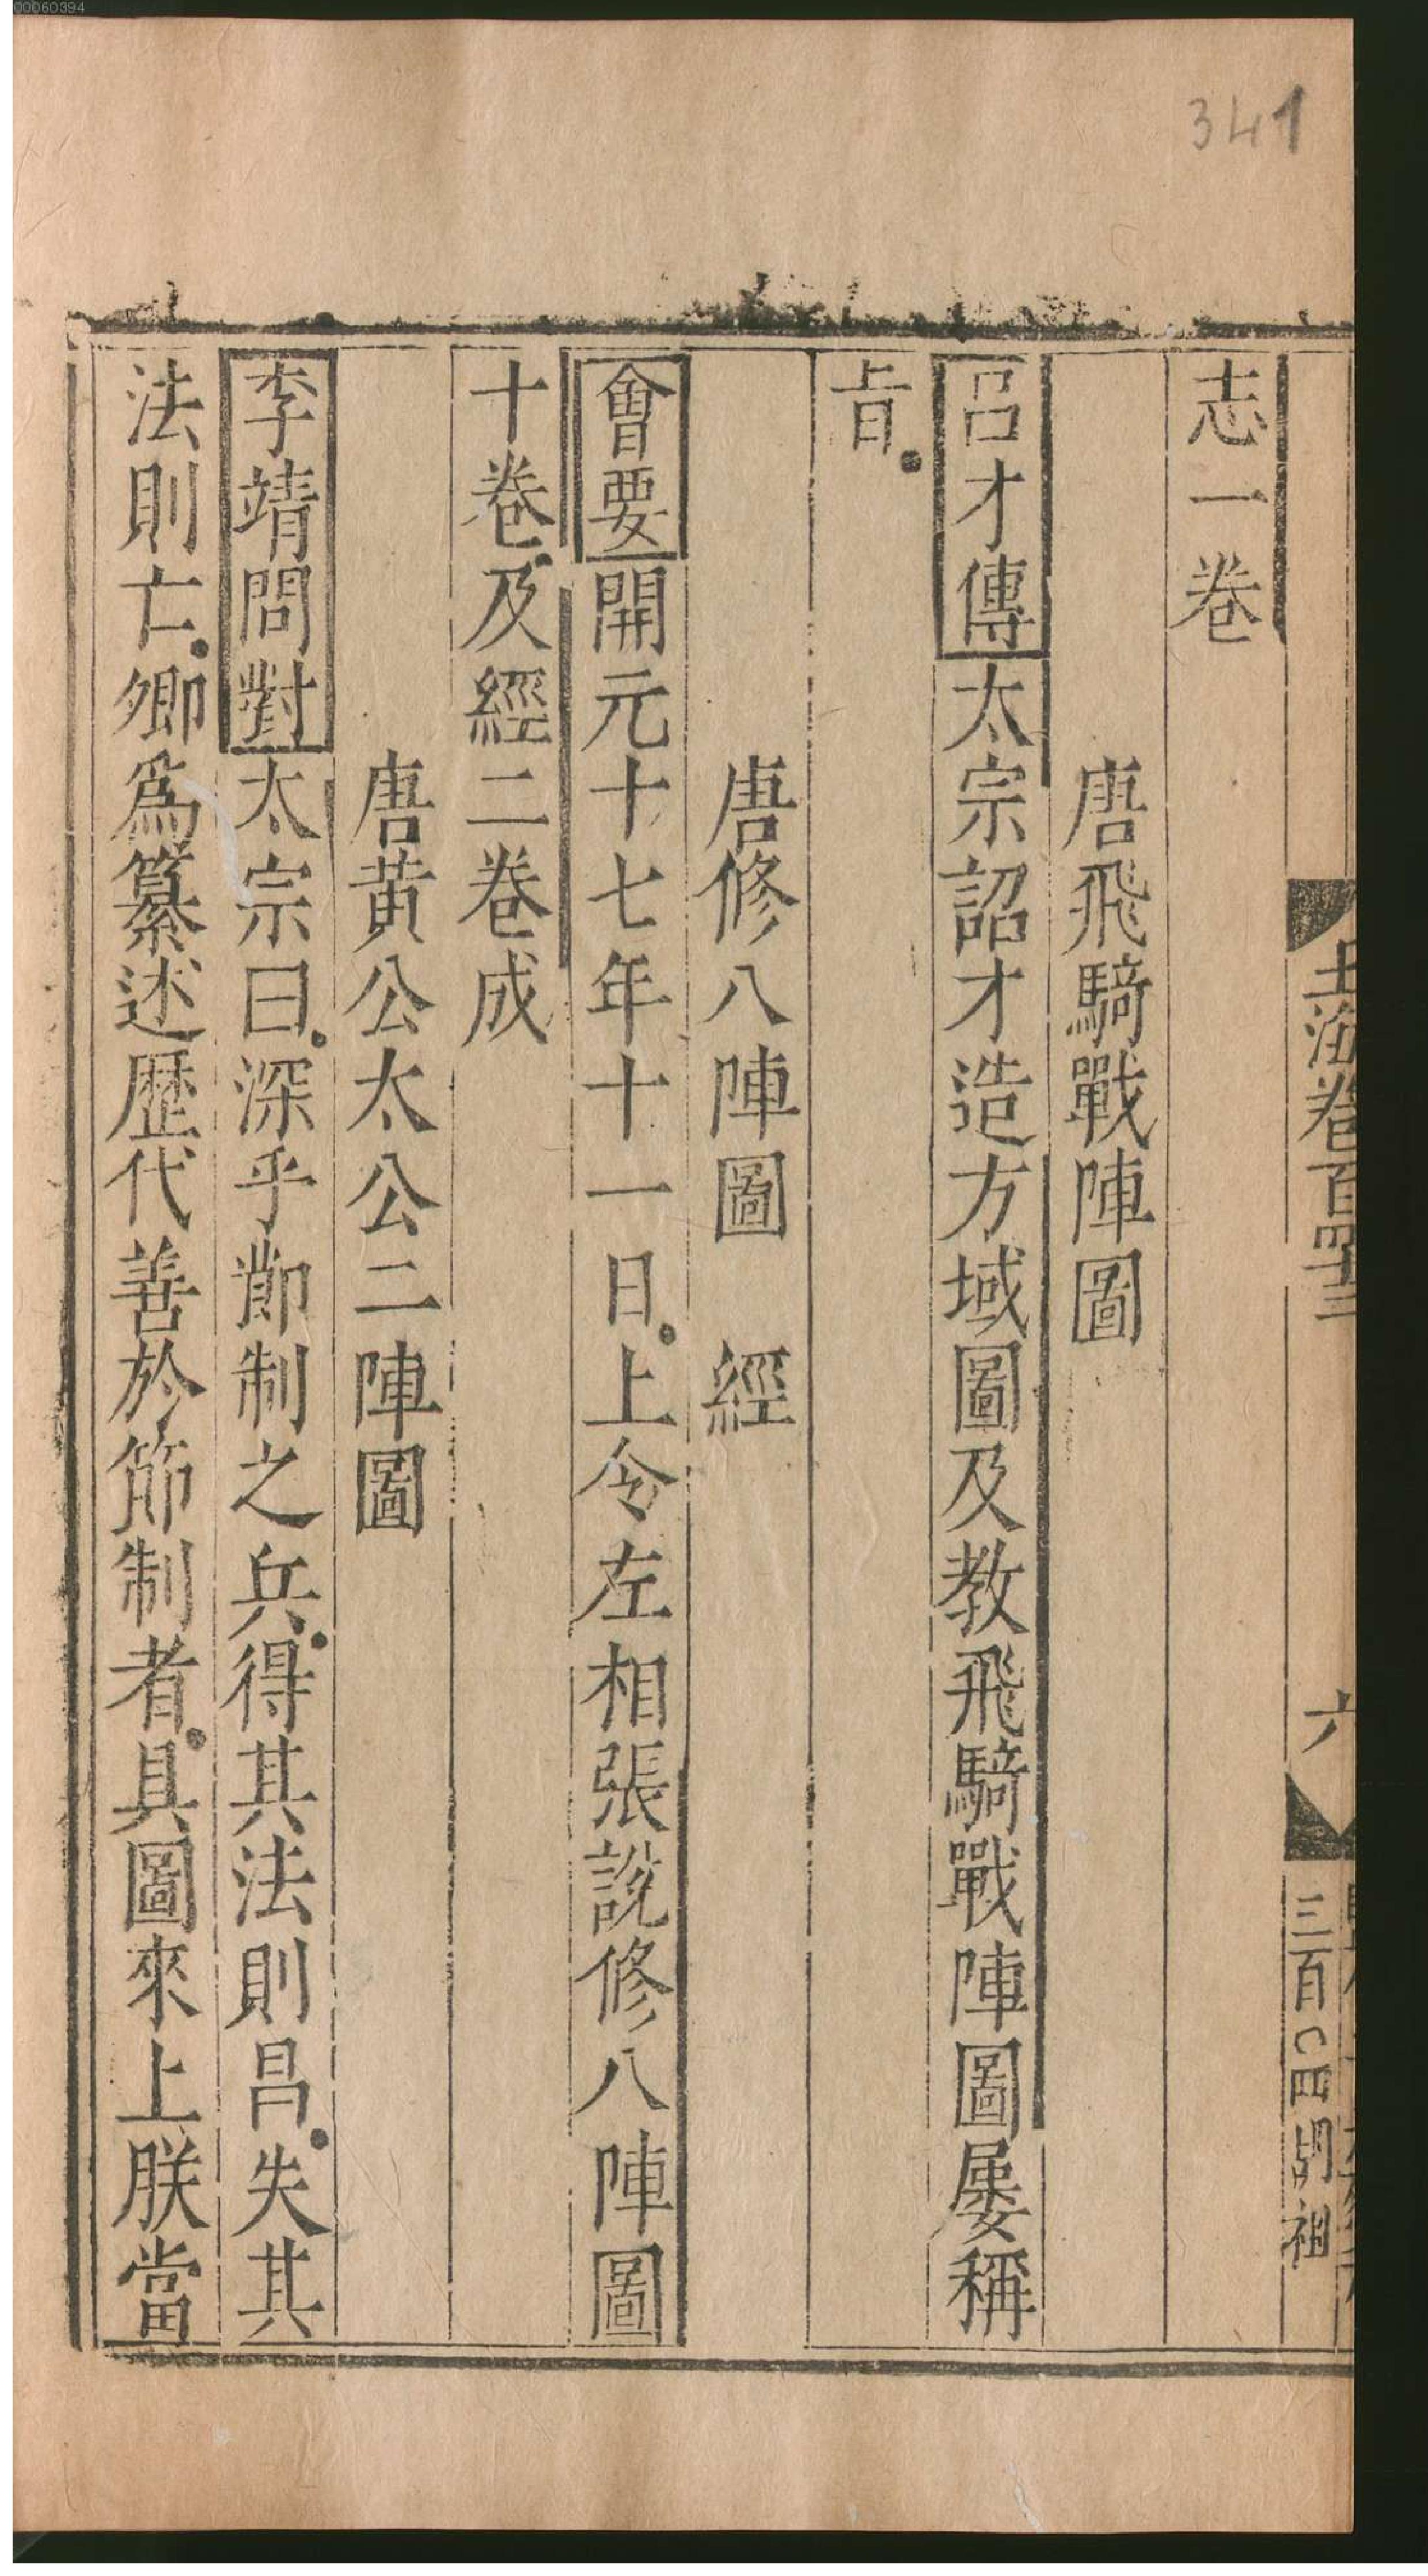 00060394
341
玉海卷百四十三
六
志一卷
唐飛騎戰陣圖
呂才傳太宗詔才造方域圖及教飛騎戰陣圖屢稱
㫖
唐修八陣圖 經
會要開元十七年十一日上令左相張說修八陣圖
十卷及經二卷成
唐黃公太公二陣圖
李靖問對太宗曰深乎節制之兵得其法則昌失其
法則亡卿為纂述歷代善於節制者具圖來上朕當